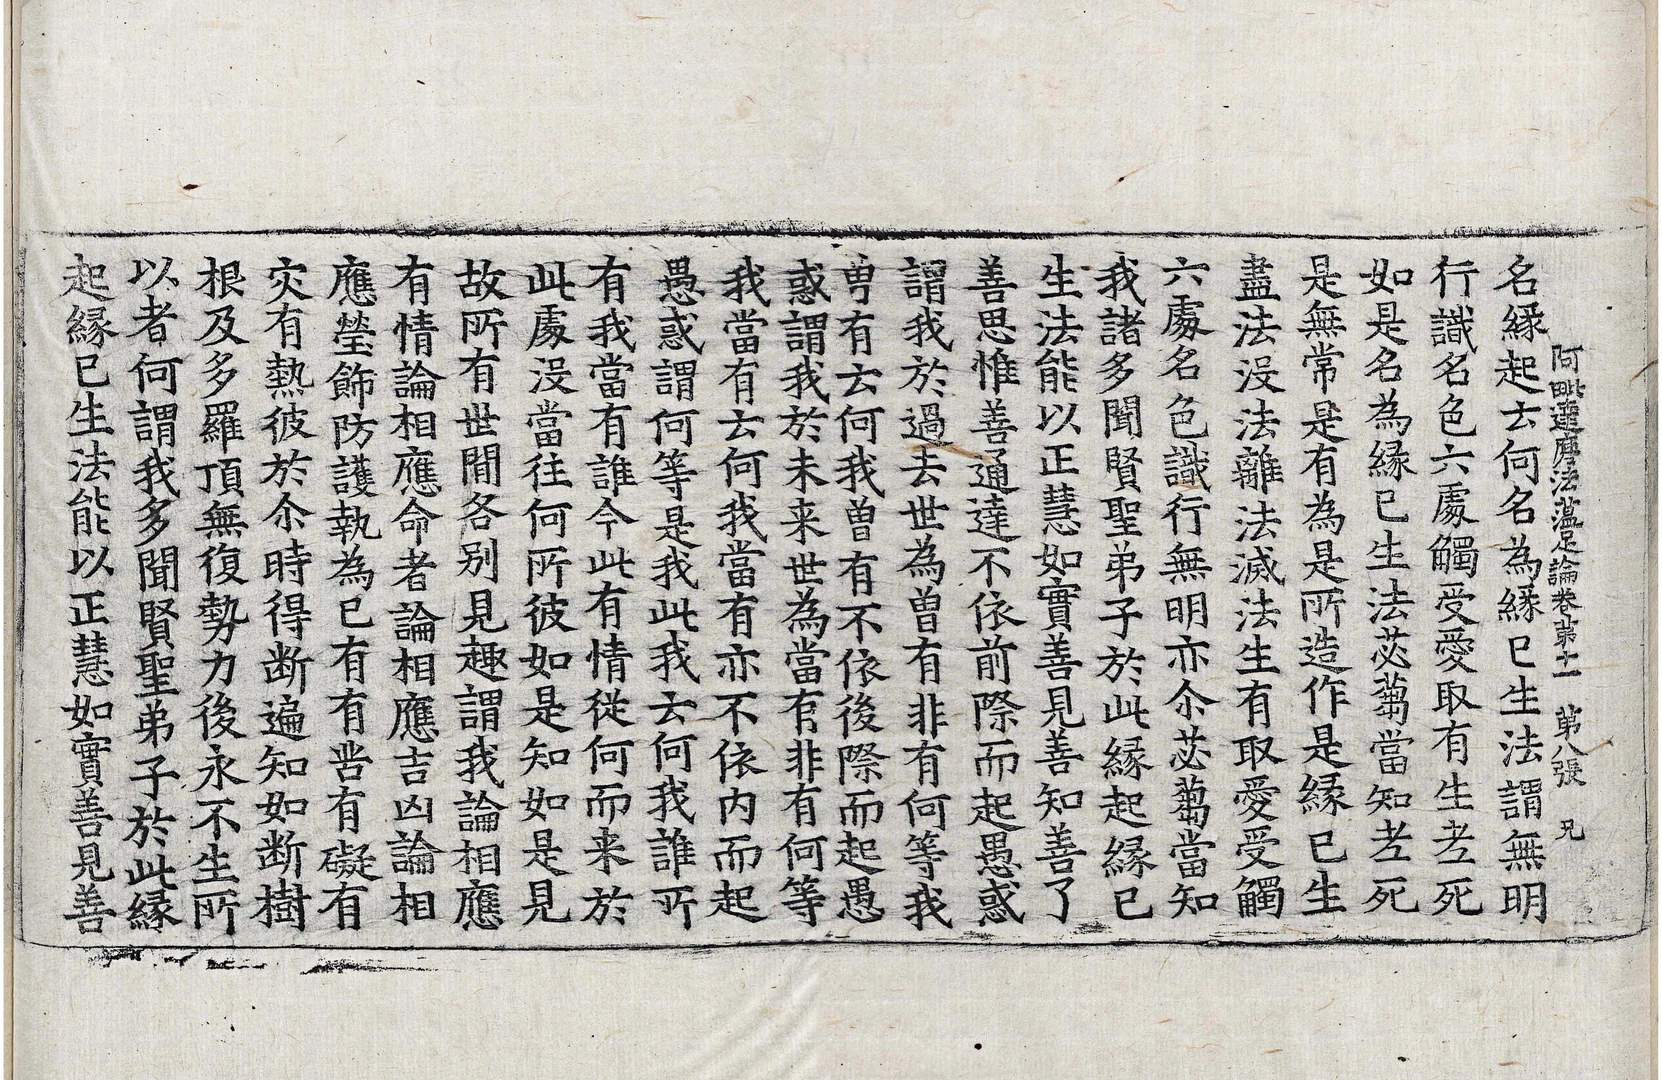 阿毗達磨法蘊足論卷苐十一 第八張 兄
名縁起云何名為縁已生法謂無明
行識名色六處觸受愛取有生老死
如是名為縁已生法苾蒭當知老死
是無常是有為是所造作是縁已生
盡法沒法離法滅法生有取愛受觸
六處名色識行無明亦尒苾蒭當知
我諸多聞賢聖弟子於此縁起縁已
生法能以正慧如實善見善知善了
善思惟善通達不依前際而起愚惑
謂我於過去世為曽有非有何等我
曽有云何我曽有不依後際而起愚
惑謂我於未来世為當有非有何等
我當有云何我當有亦不依内而起
愚惑謂何等是我此我云何我誰所
有我當有誰今此有情從何而来於
此處沒當往何所彼如是知如是見
故所有世間各别見趣謂我論相應
有情論相應命者論相應吉凶論相
應瑩飾防護執為已有有呰有礙有
灾有熱彼於尒時得断遍知如断樹
根及多羅頂無復勢力後永不生所
以者何謂我多聞賢聖弟子於此縁
起縁已生法能以正慧如實善見善